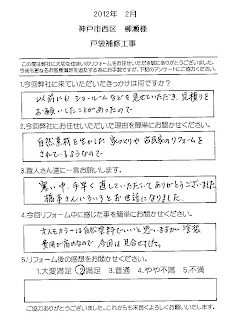 2012年 2月
神戸市西区 柳瀬様
戸袋補修工事
この度は弊社に大切な住まいのリフォームをお任せいただき誠にありがとうございました。
今後も更なるお客様満足を追及する為にお手数ですが、下記のアンケートにご協力ください。
1.今回弊社に来ていただいたきっかけは何ですか?
以前にも ショールームなどを見せていただき、見積りを
お願いしたことがあったので
2.今回弊社にお任せいただいた理由を簡単にお聞かせください。
自然素材を生かした家づくりや古民家のリフォームを
されているようなので
3.職人さん達に一言お願いします。
寒い中、手早く直していただいてありがとうございました
藤本さんいろいろとお世話になりました。
4.今回リフォーム中に感じた事を簡単にお聞かせください。
オスモカラーは自然塗料でいいと思いますが、塗装
費用が高めなので 今回は見合せました。
5.リフォーム後の感想をお聞かせください。
1.大変満足 2.満足 3.普通 4.やや不満 5.不満
ご協力ありがとうございました。これからも末長くよろしくお願いいたします。